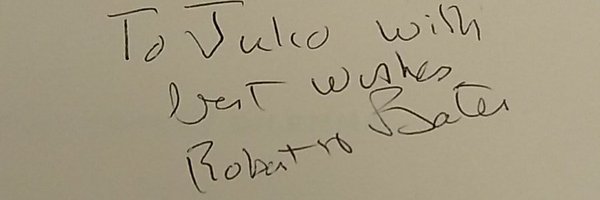 To Julio with
best wishes
Robert H Bates